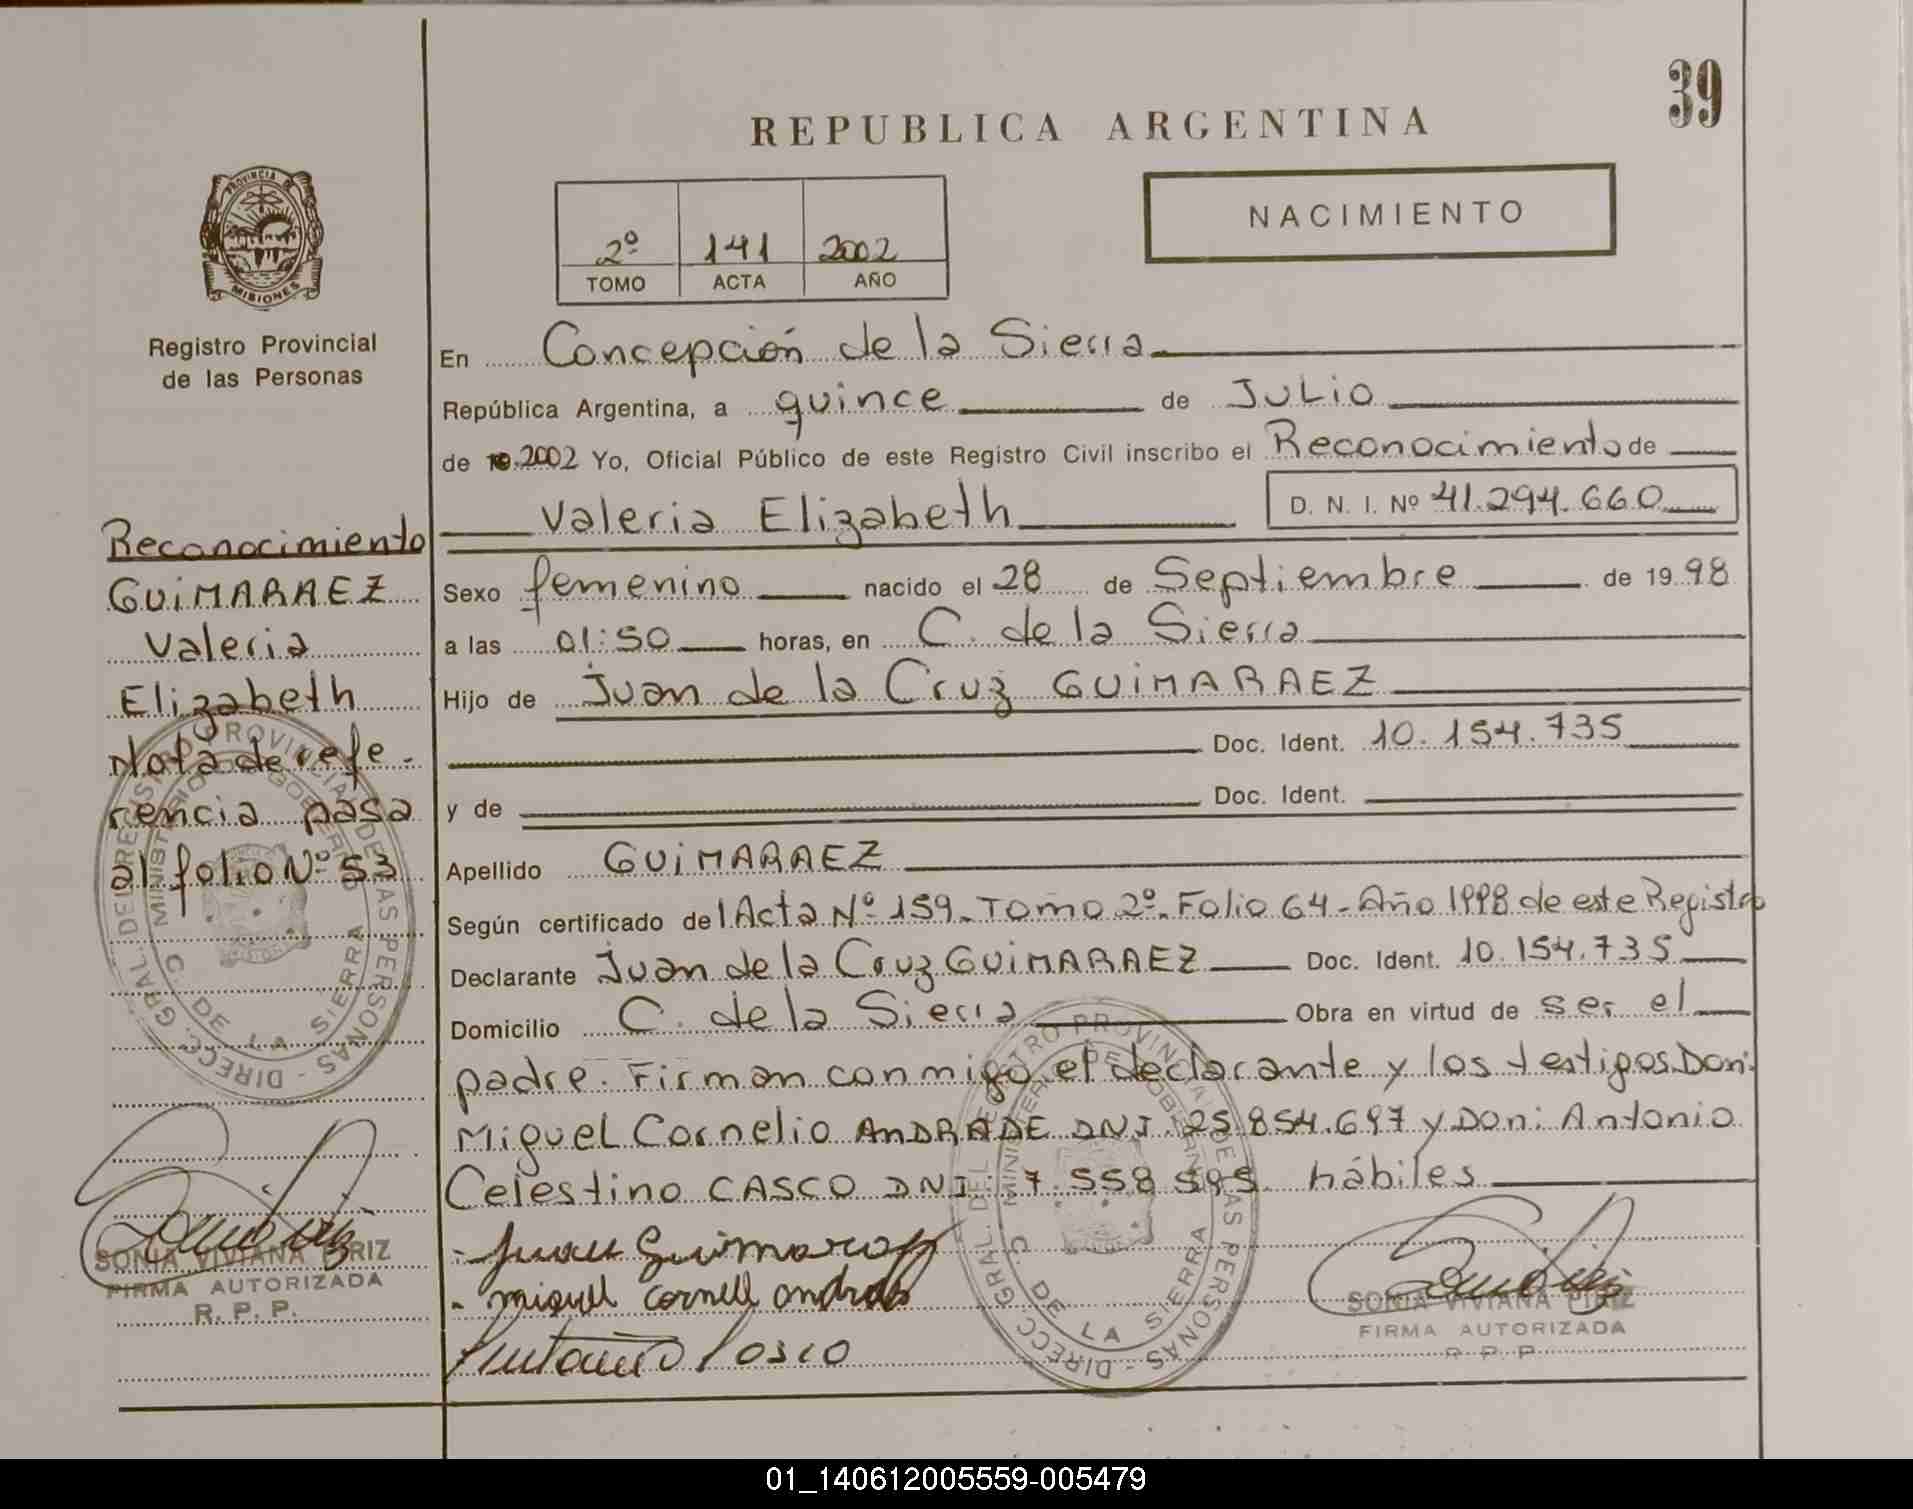 39
REPUBLICA ARGENTINA
NACIMIENTO
2º 141 2002
TOMO ACTA AÑO
PROVINCIA DE
MISIONES
Registro Provincial
de las Personas
En Concepción de la Sierra
República Argentina, a quince de JULIO
de 2002 Yo, Oficial Público de este Registro Civil inscribo el Reconocimiento de
Valeria Elizabeth D. N. I. Nº 41.294.660
Sexo femenino nacido el 28 de Septiembre de 1998
a las 01:50 horas, en C. de la Sierra
Hijo de Juan de la Cruz GUIMARAEZ
Doc. Ident. 10.154.735
y de Doc. Ident.
Apellido GUIMARAEZ
Según certificado del Acta Nº 159. Tomo 2º. Folio 64 - Año 1998 de este Registro
Declarante Juan de la Cruz GUIMARAEZ Doc. Ident. 10.154.735
Domicilio C. de la Sierra Obra en virtud de ser el
padre. Firman conmigo el declarante y los testigos Don:
Miguel Cornelio ANDRADE DNI. 25.854.697 y Don: Antonio
Celestino CASCO DNI. 7.558.595 hábiles
miguel cornell andrade
Reconocimiento
GUIMARAEZ
Valeria
Elizabeth
Nota de refe-
rencia pasa
al folio Nº 53
DIRECC. GRAL. DEL REGISTRO PROVINCIAL DE LAS PERSONAS
C. DE LA SIERRA
SONIA VIVIANA PIRIZ
FIRMA AUTORIZADA
R. P. P.
DIRECC GRAL. DEL REGISTRO PROVINCIAL DE LAS PERSONAS
C. DE LA SIERRA
SONIA VIVIANA PIRIZ
FIRMA AUTORIZADA
R. P. P.
01_140612005559-005479